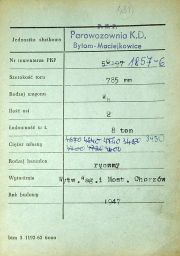 P. K. P.
Jednostka służbowa
Parowozownia K.D.
Bytom-Maciejkowice
Nr inwentarza PKP
1857-6
Szerokość toru
785 mm
Rodzaj wagonu
Ilość osi
2
Ładowność w t.
8 ton
Ciężar własny
Rodzaj hamulca
ręczny
Wytwórnia
Wytw. Wag. i Most. Chorzów
Rok budowy
1947